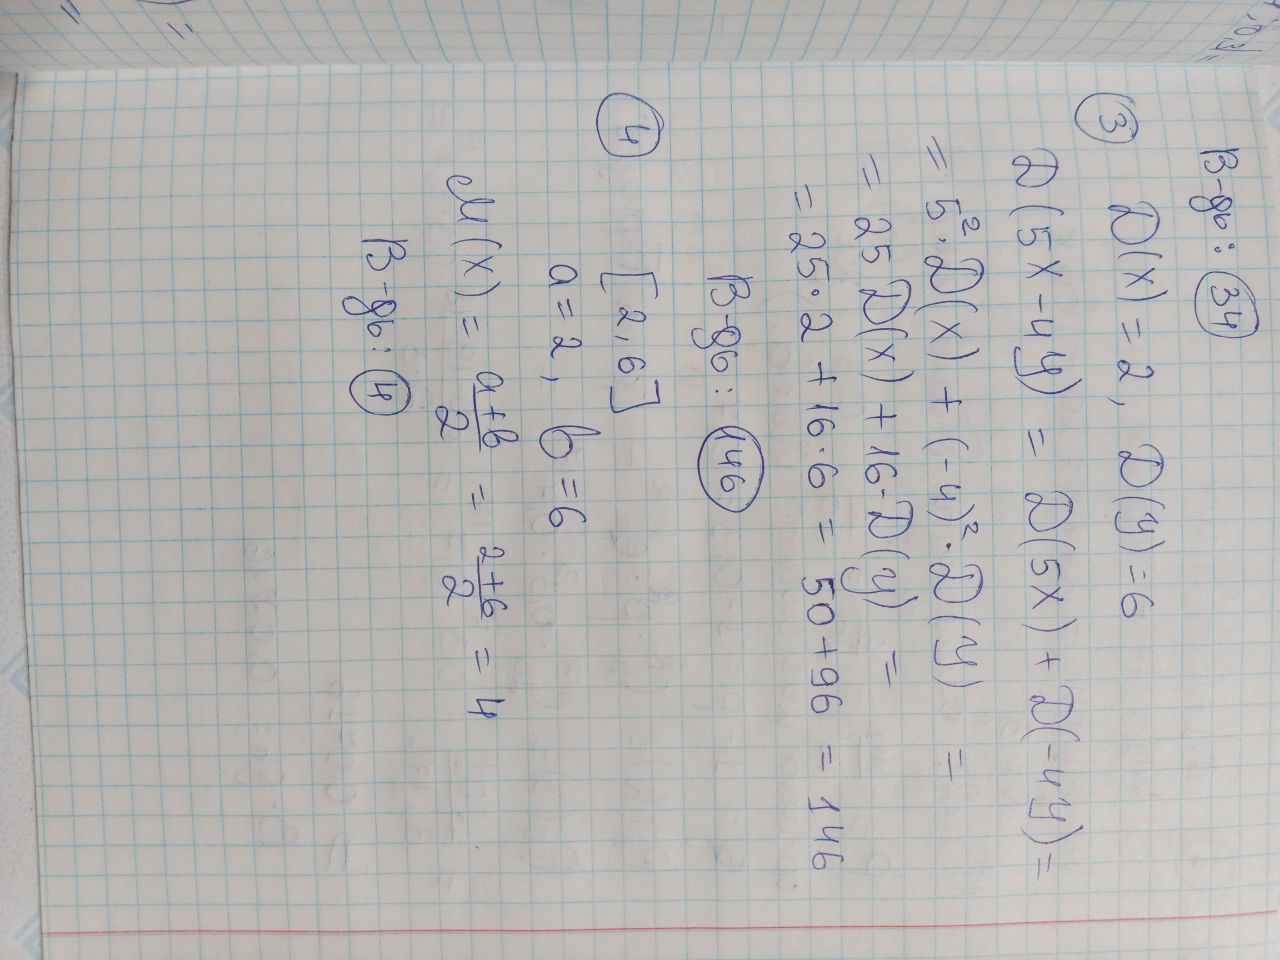 В-дь: 34
③ D(X) = 2, D(Y) = 6
D(5X - 4Y) = D(5X) + D(-4Y) =
= 5²·D(X) + (-4)²·D(Y) =
= 25 D(X) + 16·D(Y) =
= 25·2 + 16·6 = 50 + 96 = 146
В-дь: 146
④ [2, 6]
a = 2, b = 6
M(X) = (a+b)/2 = (2+6)/2 = 4
В-дь: 4